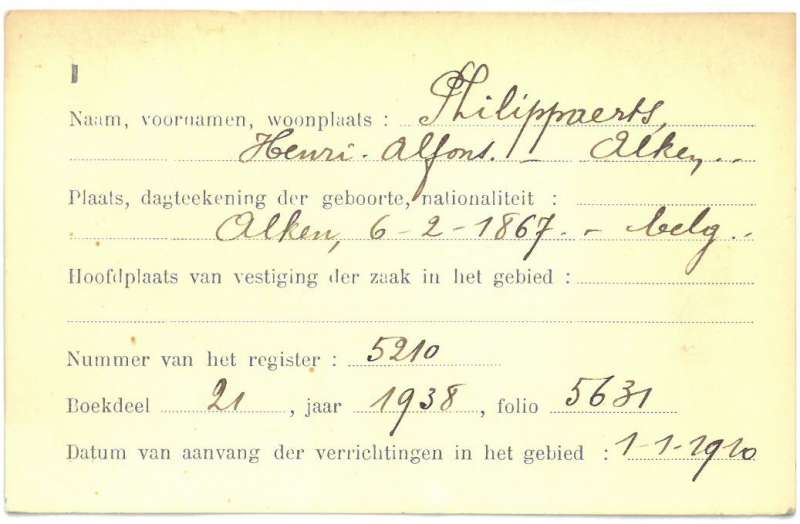 Naam, voornamen, woonplaats : Philippaerts,
Henri. Alfons. – Alken, ..
Plaats, dagteekening der geboorte, nationaliteit :
Alken, 6-2-1867. – belg ..
Hoofdplaats van vestiging der zaak in het gebied :
Nummer van het register : 5210
Boekdeel 21, jaar 1938, folio 5631
Datum van aanvang der verrichtingen in het gebied : 1-1-1910